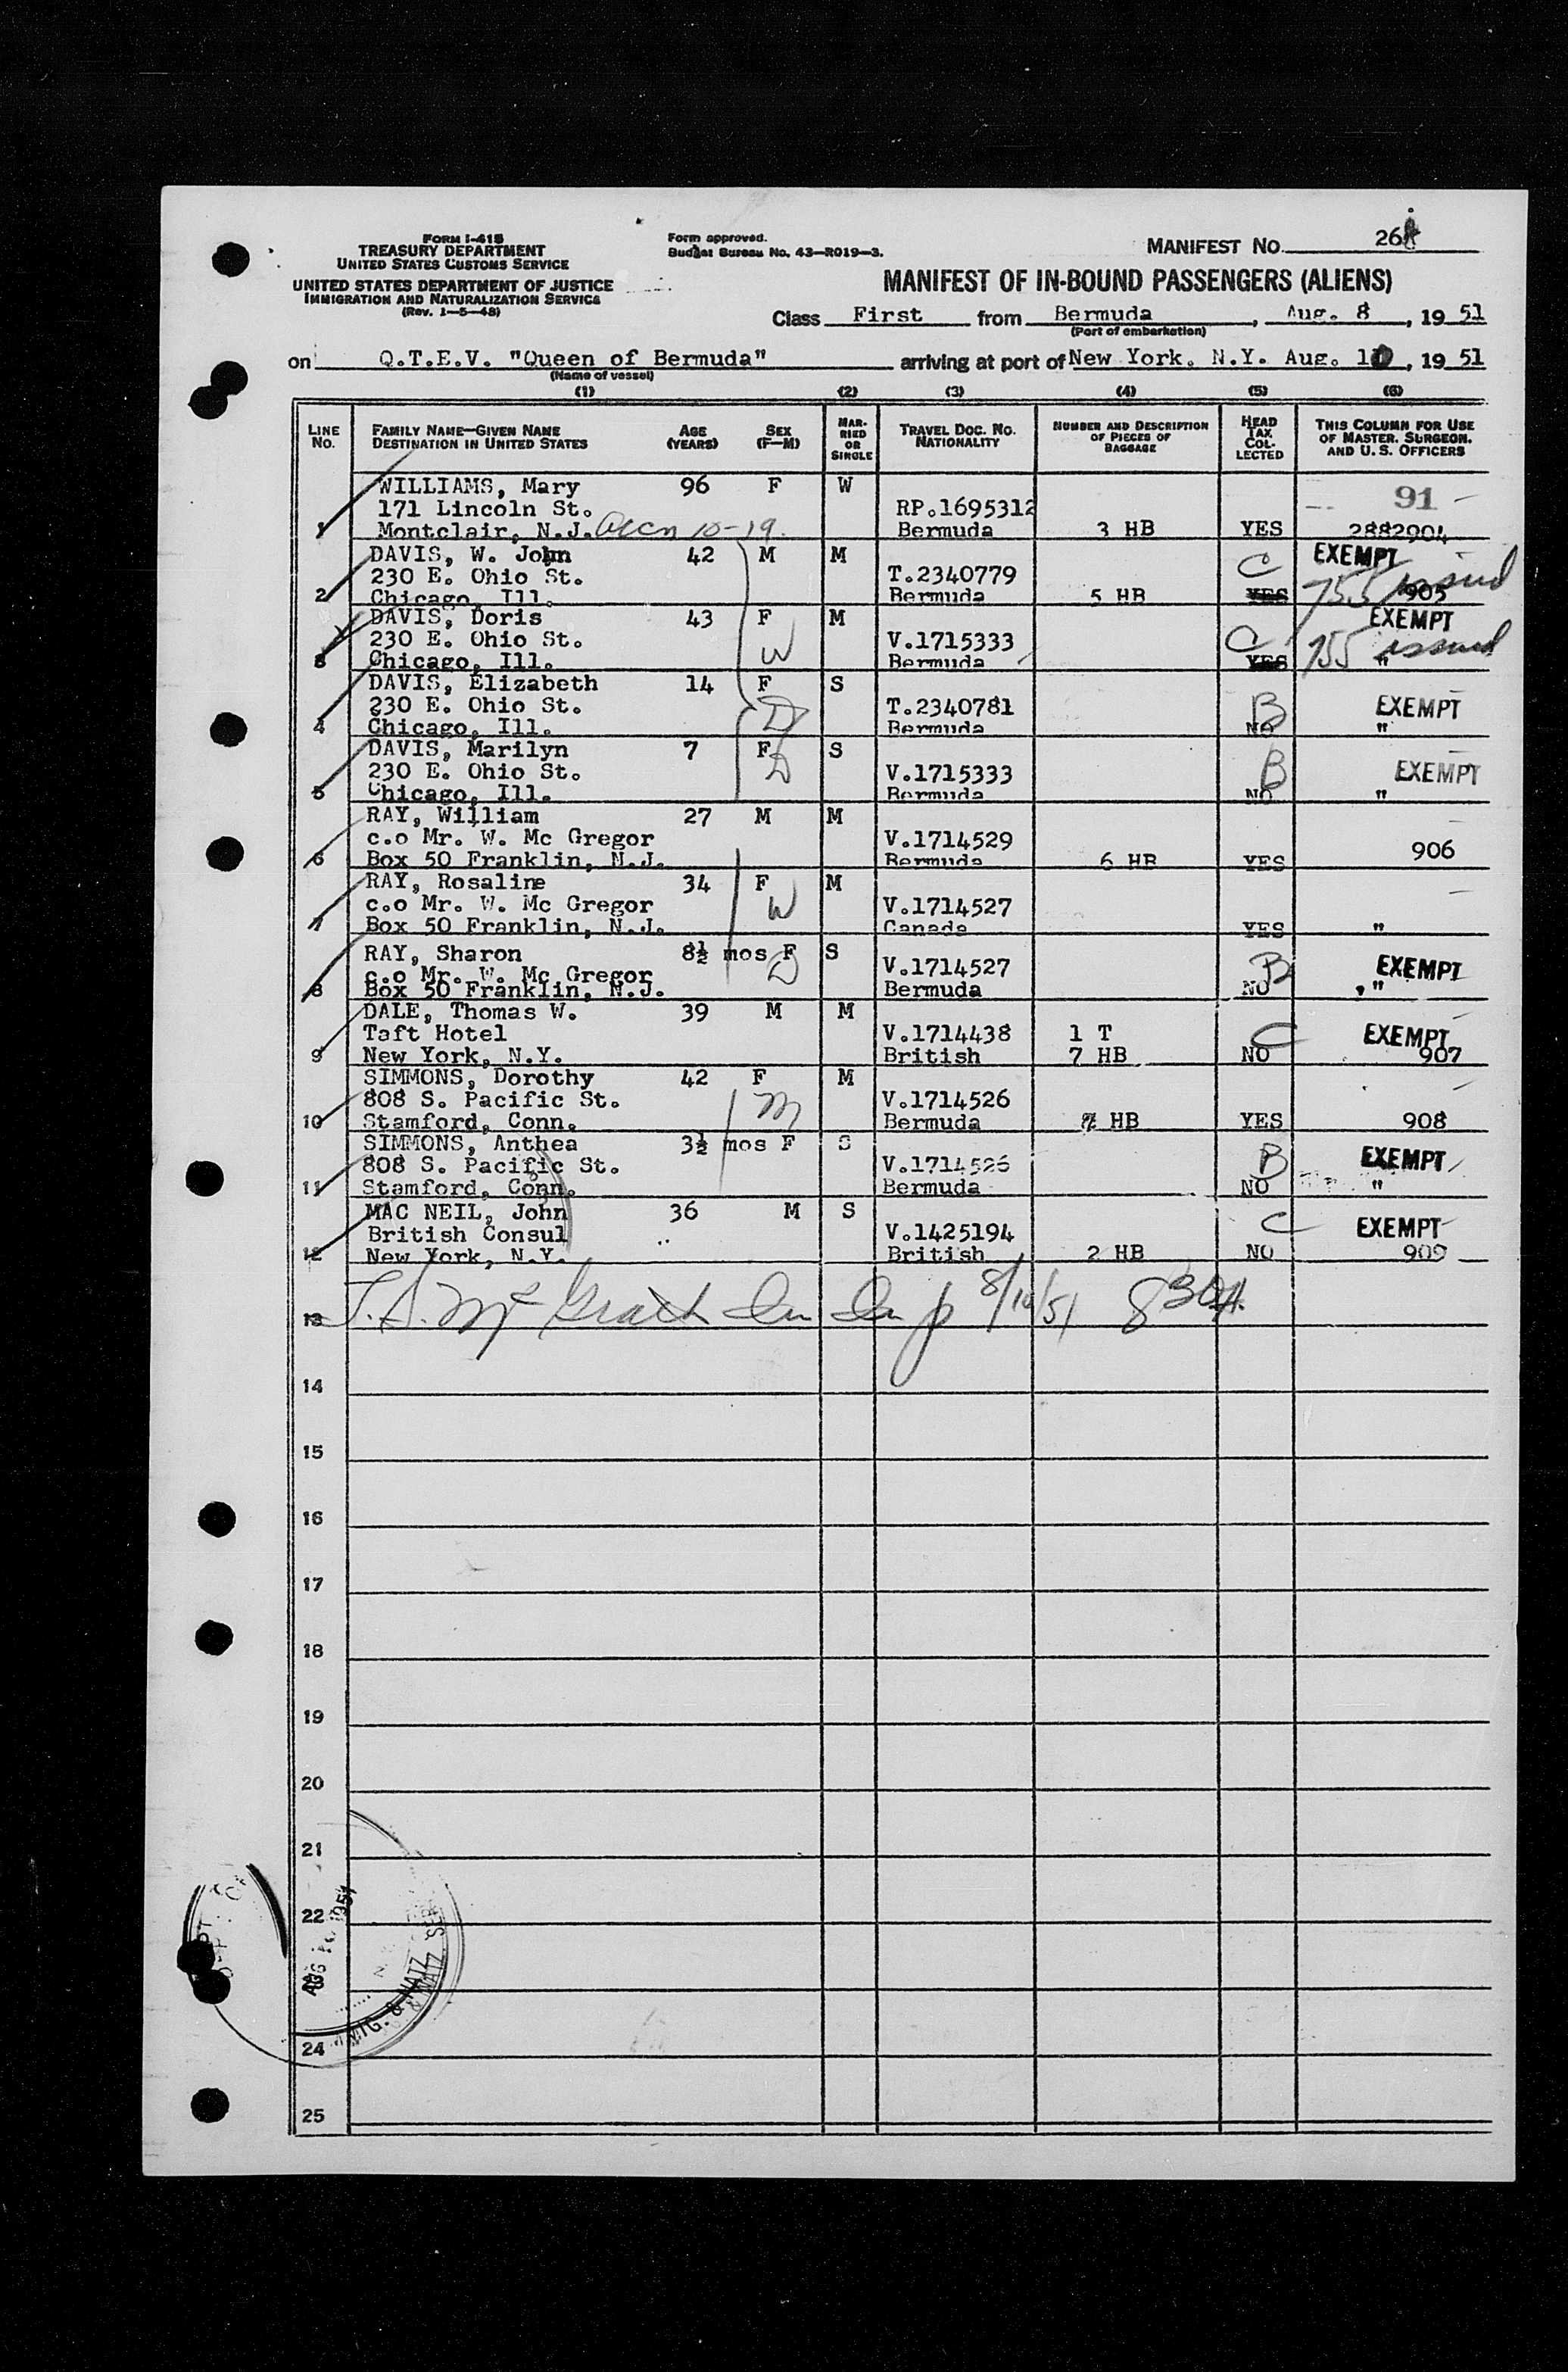 FORM I-415
TREASURY DEPARTMENT
UNITED STATES CUSTOMS SERVICE
UNITED STATES DEPARTMENT OF JUSTICE
IMMIGRATION AND NATURALIZATION SERVICE
(Rev. 1-5-48)
Form approved.
Budget Bureau No. 43-R019-3.
MANIFEST NO. 26
MANIFEST OF IN-BOUND PASSENGERS (ALIENS)
Class First from Bermuda, Aug. 8, 19 51
(Port of embarkation)
on Q.T.E.V. "Queen of Bermuda" arriving at port of New York, N.Y. Aug. 10, 19 51
(Name of vessel)
(1) (2) (3) (4) (5) (6)
LINE NO. FAMILY NAME—GIVEN NAME DESTINATION IN UNITED STATES AGE (YEARS) SEX (F—M) MARRIED OR SINGLE TRAVEL DOC. NO. NATIONALITY NUMBER AND DESCRIPTION OF PIECES OF BAGGAGE HEAD TAX COLLECTED THIS COLUMN FOR USE OF MASTER, SURGEON, AND U. S. OFFICERS
WILLIAMS, Mary 96 F W 91
171 Lincoln St. RP.1695312
1 Montclair, N.J. 10-19 Bermuda 3 HB YES 2882904
DAVIS, W. John 42 M M C EXEMPT
230 E. Ohio St. T.2340779
2 Chicago, Ill. Bermuda 5 HB YES 755 issued 905
DAVIS, Doris 43 F M EXEMPT
230 E. Ohio St. W V.1715333 C
3 Chicago, Ill. Bermuda YES 755 issued "
DAVIS, Elizabeth 14 F S
230 E. Ohio St. D T.2340781 B EXEMPT
4 Chicago, Ill. Bermuda NO "
DAVIS, Marilyn 7 F S
230 E. Ohio St. D V.1715333 B EXEMPT
5 Chicago, Ill. Bermuda NO "
RAY, William 27 M M
c.o Mr. W. Mc Gregor V.1714529
6 Box 50 Franklin, N.J. Bermuda 6 HB YES 906
RAY, Rosaline 34 F M
c.o Mr. W. Mc Gregor W V.1714527
7 Box 50 Franklin, N.J. Canada YES "
RAY, Sharon 8½ mos F S
c.o Mr. W. Mc Gregor D V.1714527 B EXEMPT
8 Box 50 Franklin, N.J. Bermuda NO "
DALE, Thomas W. 39 M M
Taft Hotel V.1714438 1 T C EXEMPT
9 New York, N.Y. British 7 HB NO 907
SIMMONS, Dorothy 42 F M
808 S. Pacific St. M V.1714526
10 Stamford, Conn. Bermuda 7 HB YES 908
SIMMONS, Anthea 3½ mos F S
808 S. Pacific St. V.1714526 B EXEMPT
11 Stamford, Conn. Bermuda NO "
MAC NEIL, John 36 M S
British Consul V.1425194 C EXEMPT
12 New York, N.Y. British 2 HB NO 909
13 8/10/51 8 30 A.
14
15
16
17
18
19
20
21
22
23
24
25
AUG 1951
IMMIG. & NATZ. SER